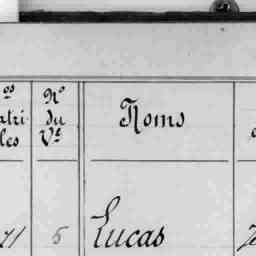 os
atri
les
No
du
Vt
Noms
71
5
Lucas